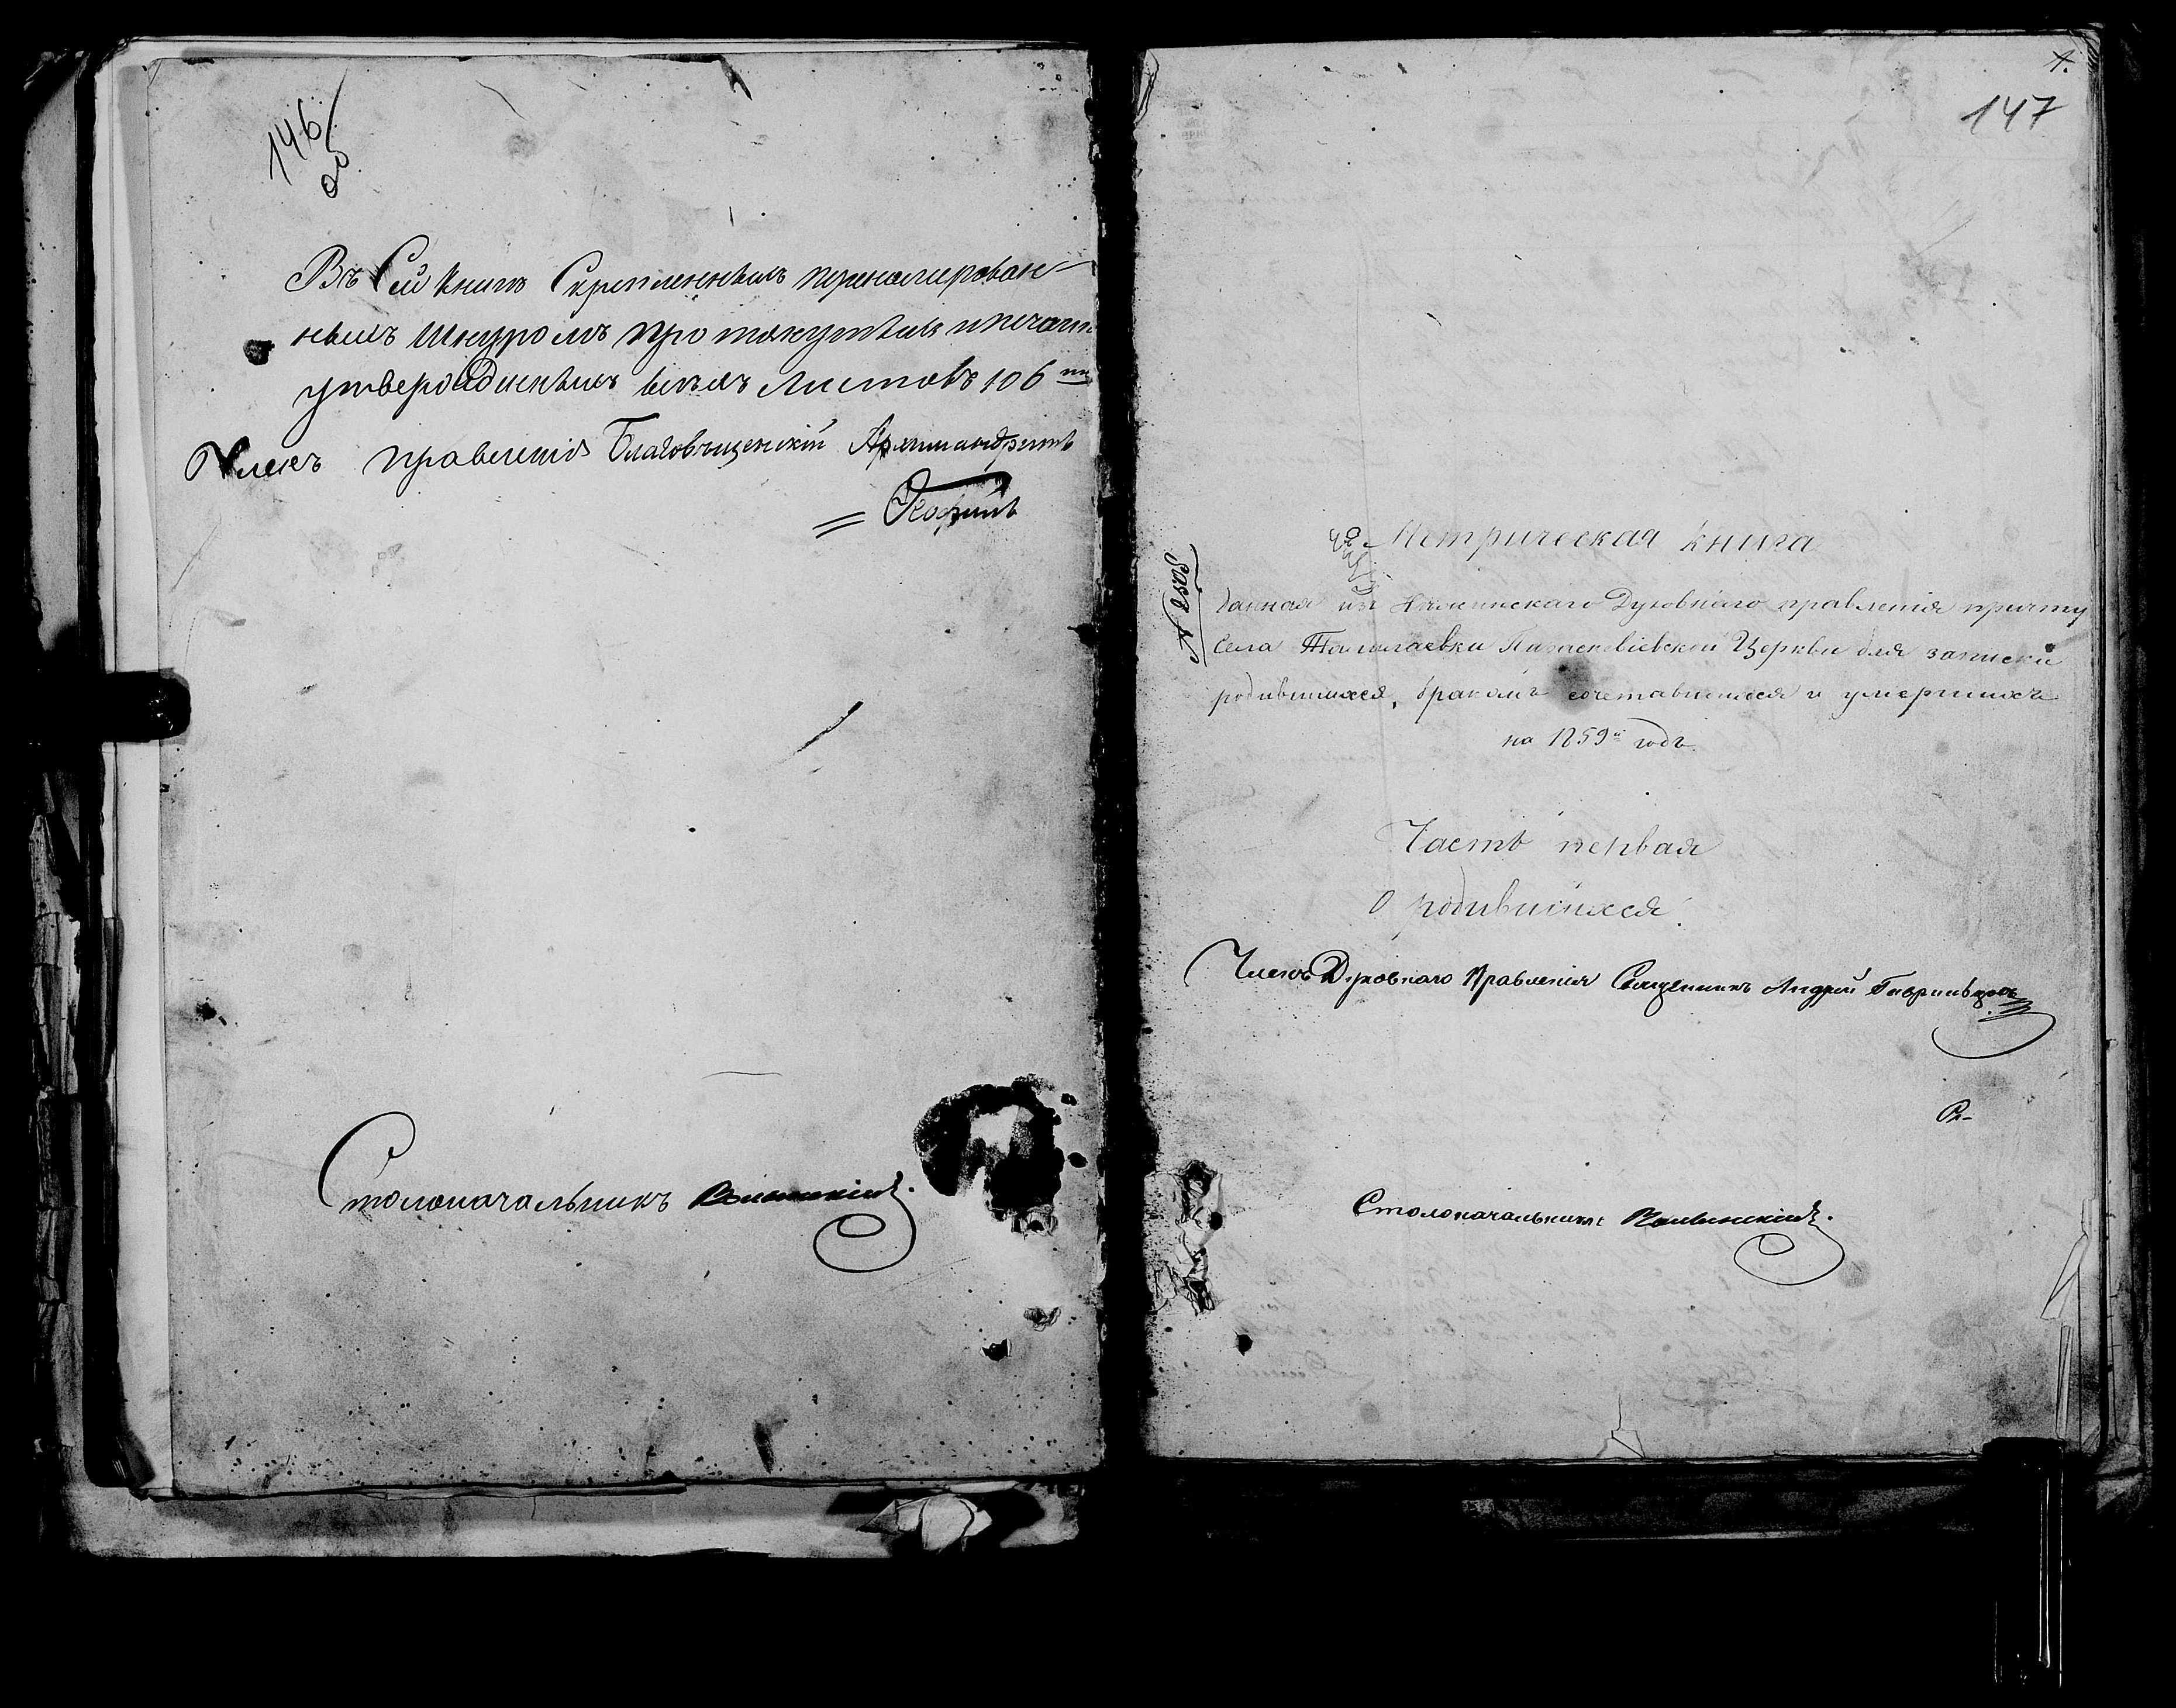 146
об
Въ сей книгѣ скрепленныхъ перенумерован-
ныхъ шнуромъ протянутыхъ и печатью
утвержденныхъ всѣхъ листовъ 106
Членъ правленія Благовѣщенскій Архимандритъ
Столоначальникъ
1.
147
Метрическая книга
№ 2508
данная изъ Нѣжинскаго Духовнаго правленія причту
села Талалаевки Параскевіевской Церкви для записки
родившихся, бракомъ сочетавшихся и умершихъ
на 1859й годъ.
Часть первая
О родившихся.
Членъ Духовнаго Правленія Священникъ Андрей
Столоначальникъ